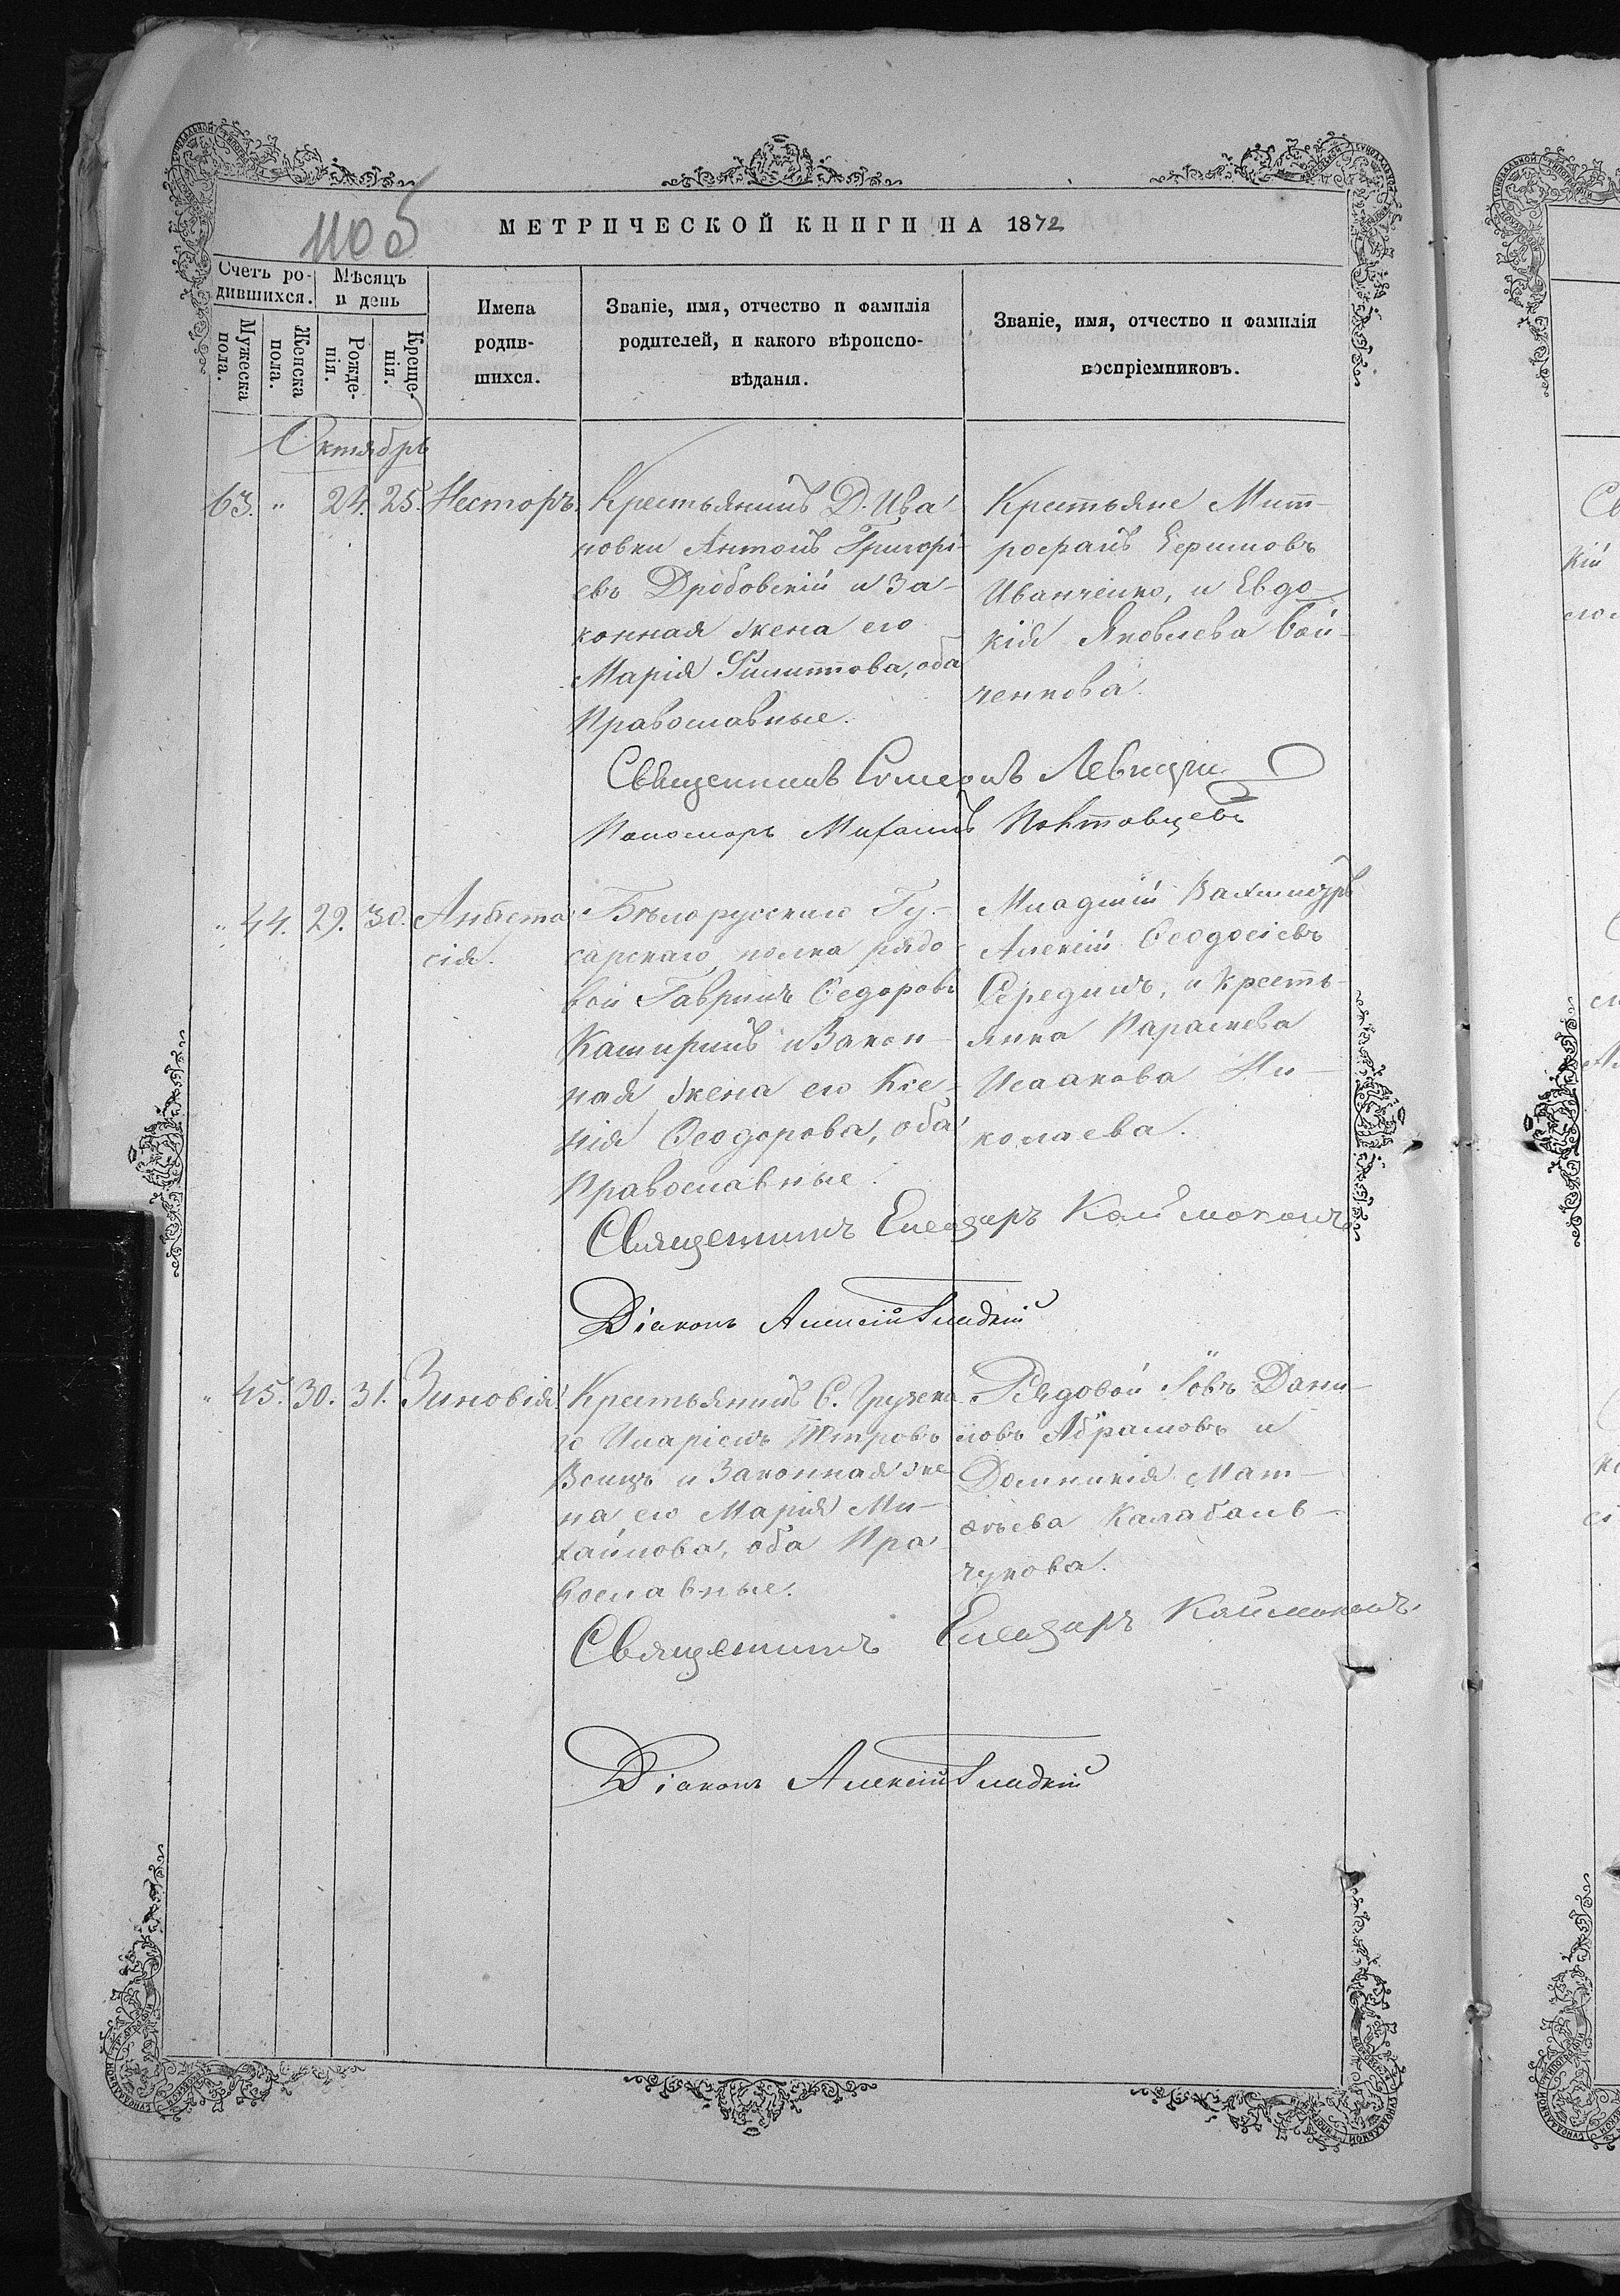 110 об
МЕТРИЧЕСКОЙ КНИГИ НА 1872
Счетъ ро-
дившихся.
Мѣсяцъ
и день
Мужеска
пола.
Женска
пола.
Рожде-
нія.
Креще-
нія.
Имена
родив-
шихся.
Званіе, имя, отчество и фамилія
родителей, и какого вѣроиспо-
вѣданія.
Званіе, имя, отчество и фамилія
воспріемниковъ.
Октябрь
63. " 24. 25. Несторъ.
Крестьянинъ Д. Ива-
новки Антонъ Григорі-
евъ Дробовскій и за-
конная жена его
Марія Филиппова, оба
Православные.
Крестьяне Мит-
рофанъ Ефимовъ
Иванченко, и Евдо-
кія Яковлева Бой-
ченкова.
Священникъ Симеонъ Левицкій
Пономарь Михаилъ
" 44. 29. 30. Анаста
сія.
Бѣлорусскаго Гу-
сарскаго полка рядо-
вой Гавріилъ Ѳедоровъ
Каширинъ и Закон-
ная жена его Ксе-
нія Ѳеодорова, оба
Православные.
Младшій Вахмистръ
Алексій Ѳеодосіевъ
Середин, и Кресть-
янка Параскева
Исаакова Ни-
колаева.
Священникъ Елеазаръ Каймаканъ
Діаконъ Алексій Гладкій
" 45. 30. 31. Зиновія
Крестьянинъ С. Грузска
го Иларіонъ Петровъ
и Законная же
на его Марія Ми-
хайлова, оба Пра
вославные.
Рядовой Іовъ Дани-
ловъ Абрамовъ и
Домникія Мат-
ѳѣева Калабаль-
чукова.
Священникъ Елеазаръ Каймаканъ
Діаконъ Алексій Гладкій